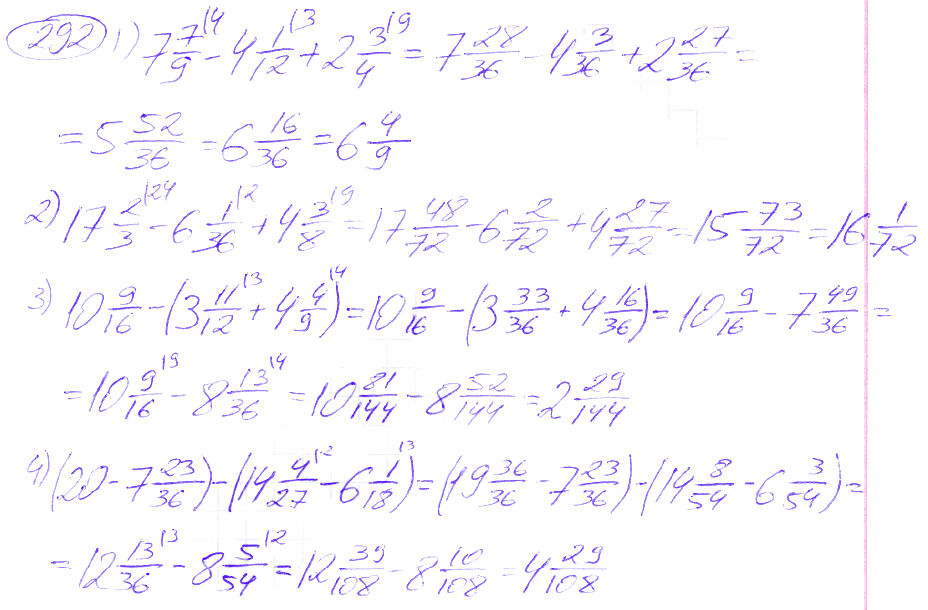 292 1) 7 7/9 |4 - 4 1/12 |3 + 2 3/4 |9 = 7 28/36 - 4 3/36 + 2 27/36 =
= 5 52/36 = 6 16/36 = 6 4/9
2) 17 2/3 |24 - 6 1/36 |2 + 4 3/8 |9 = 17 48/72 - 6 2/72 + 4 27/72 = 15 73/72 = 16 1/72
3) 10 9/16 - (3 11/12 |3 + 4 4/9 |4) = 10 9/16 - (3 33/36 + 4 16/36) = 10 9/16 - 7 49/36 =
= 10 9/16 |9 - 8 13/36 |4 = 10 81/144 - 8 52/144 = 2 29/144
4) (20 - 7 23/36) - (14 4/27 |2 - 6 1/18 |3) = (19 36/36 - 7 23/36) - (14 8/54 - 6 3/54) =
= 12 13/36 |3 - 8 5/54 |2 = 12 39/108 - 8 10/108 = 4 29/108